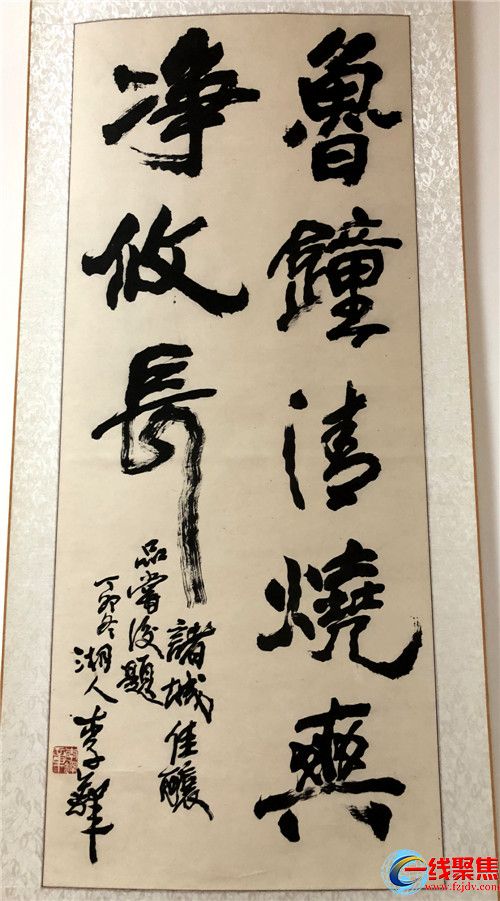 魯鐘清燒爽
净攸長
諸城佳釀
品嘗後題
丁卯冬湘人李鐸
一线聚焦
www.fzjdv.com